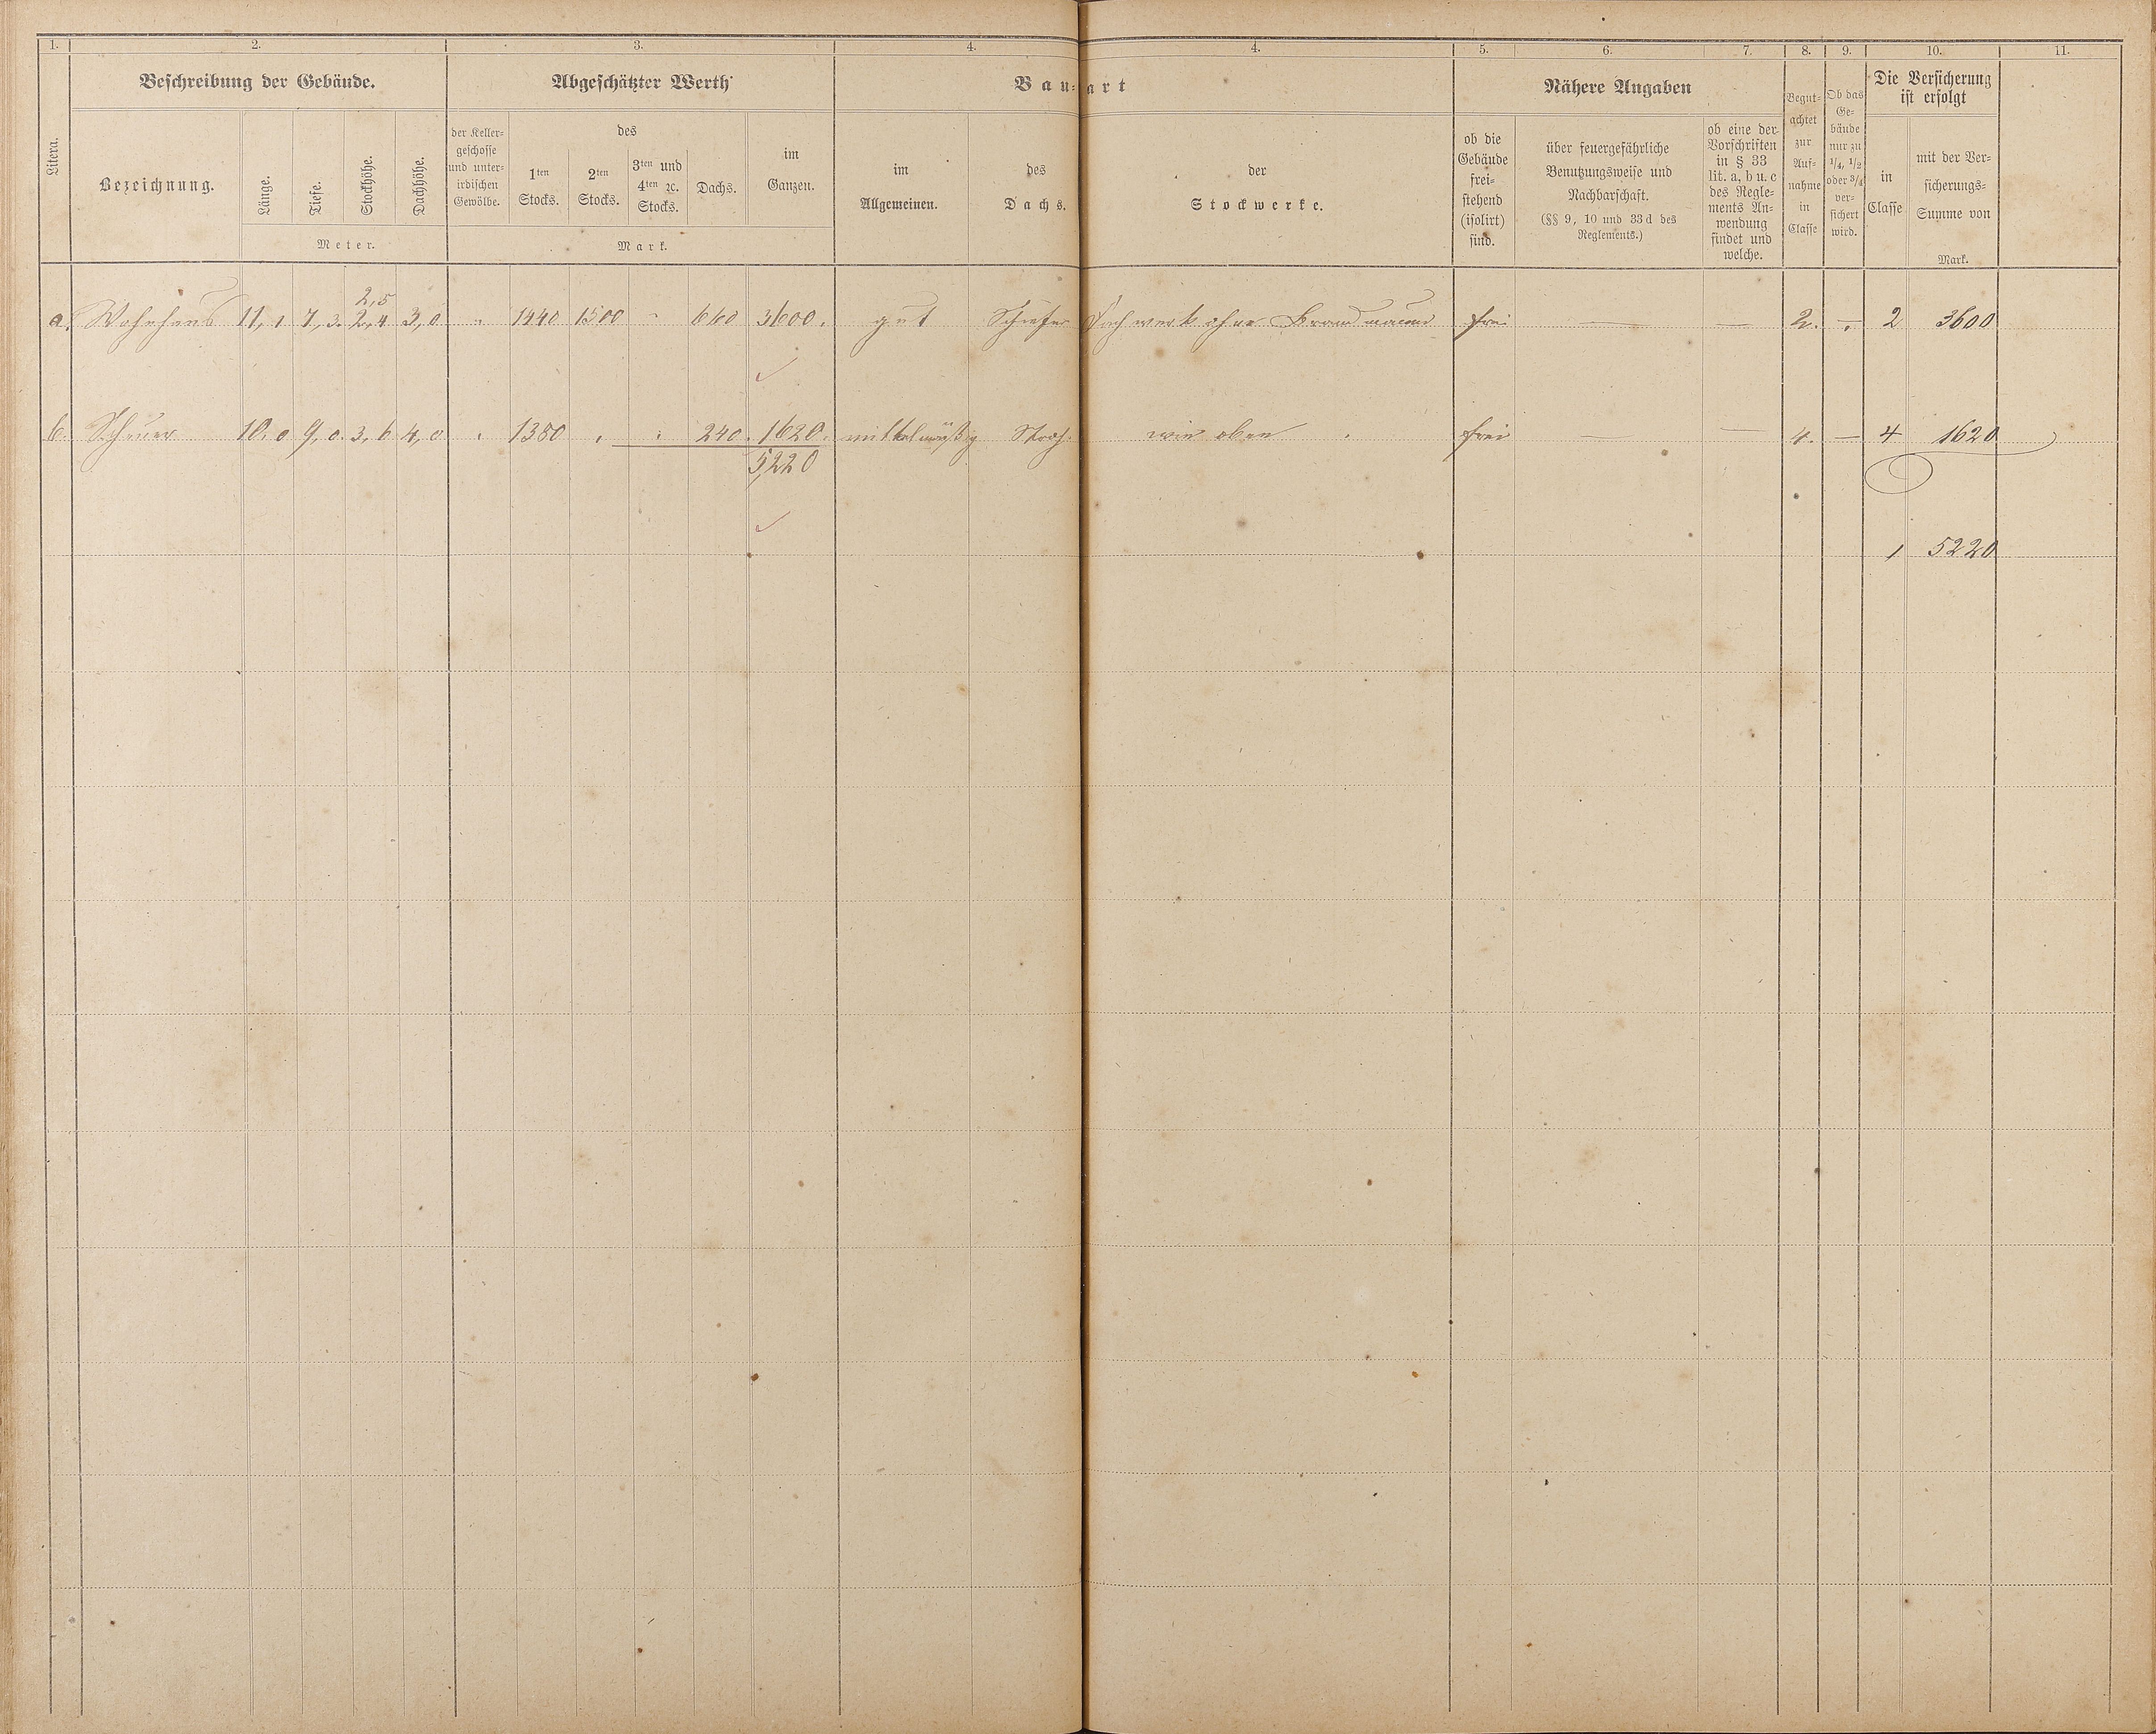 1. 2. 3. 4. 4. 5. 6. 7. 8. 9. 10. 11.
Litera.
Beschreibung der Gebäude.
Bezeichnung.
Länge.
Tiefe.
Stockhöhe.
Dachhöhe.
Meter.
Abgeschätzter Werth
der Keller-
geschosse
und unter-
irdischen
Gewölbe.
des
1ten
Stocks.
2ten
Stocks.
3ten und
4ten ꝛc.
Stocks.
Dachs.
im
Ganzen.
Mark.
Bau-art
im
Allgemeinen.
des
Dachs.
der
Stockwerke.
Nähere Angaben
ob die
Gebäude
frei-
stehend
(isolirt)
sind.
über feuergefährliche
Benutzungsweise und
Nachbarschaft.
(§§ 9, 10 und 33 d des
Reglements.)
ob eine der
Vorschriften
in § 33
lit. a, b u. c
des Regle-
ments An-
wendung
findet und
welche.
Begut-
achtet
zur
Auf-
nahme
in
Classe
Ob das
Ge-
bäude
nur zu
1/4, 1/2
oder 3/4
ver-
sichert
wird.
Die Versicherung
ist erfolgt
in
Classe
mit der Ver-
sicherungs-
Summe von
Mark.
2,5
a. Wohnhaus 11,1 7,3. 2,4 3,0 " 1440 1500 " 660 3600. gut Schiefer Fachwerk ohne Brandmauer frei — — 2. — 2 3600
b. Scheuer 10,0 9,0. 3,6 4,0 " 1380 " " 240. 1620. mittelmäßig Stroh wie oben. frei — — 4. — 4 1620
5220
1 5220